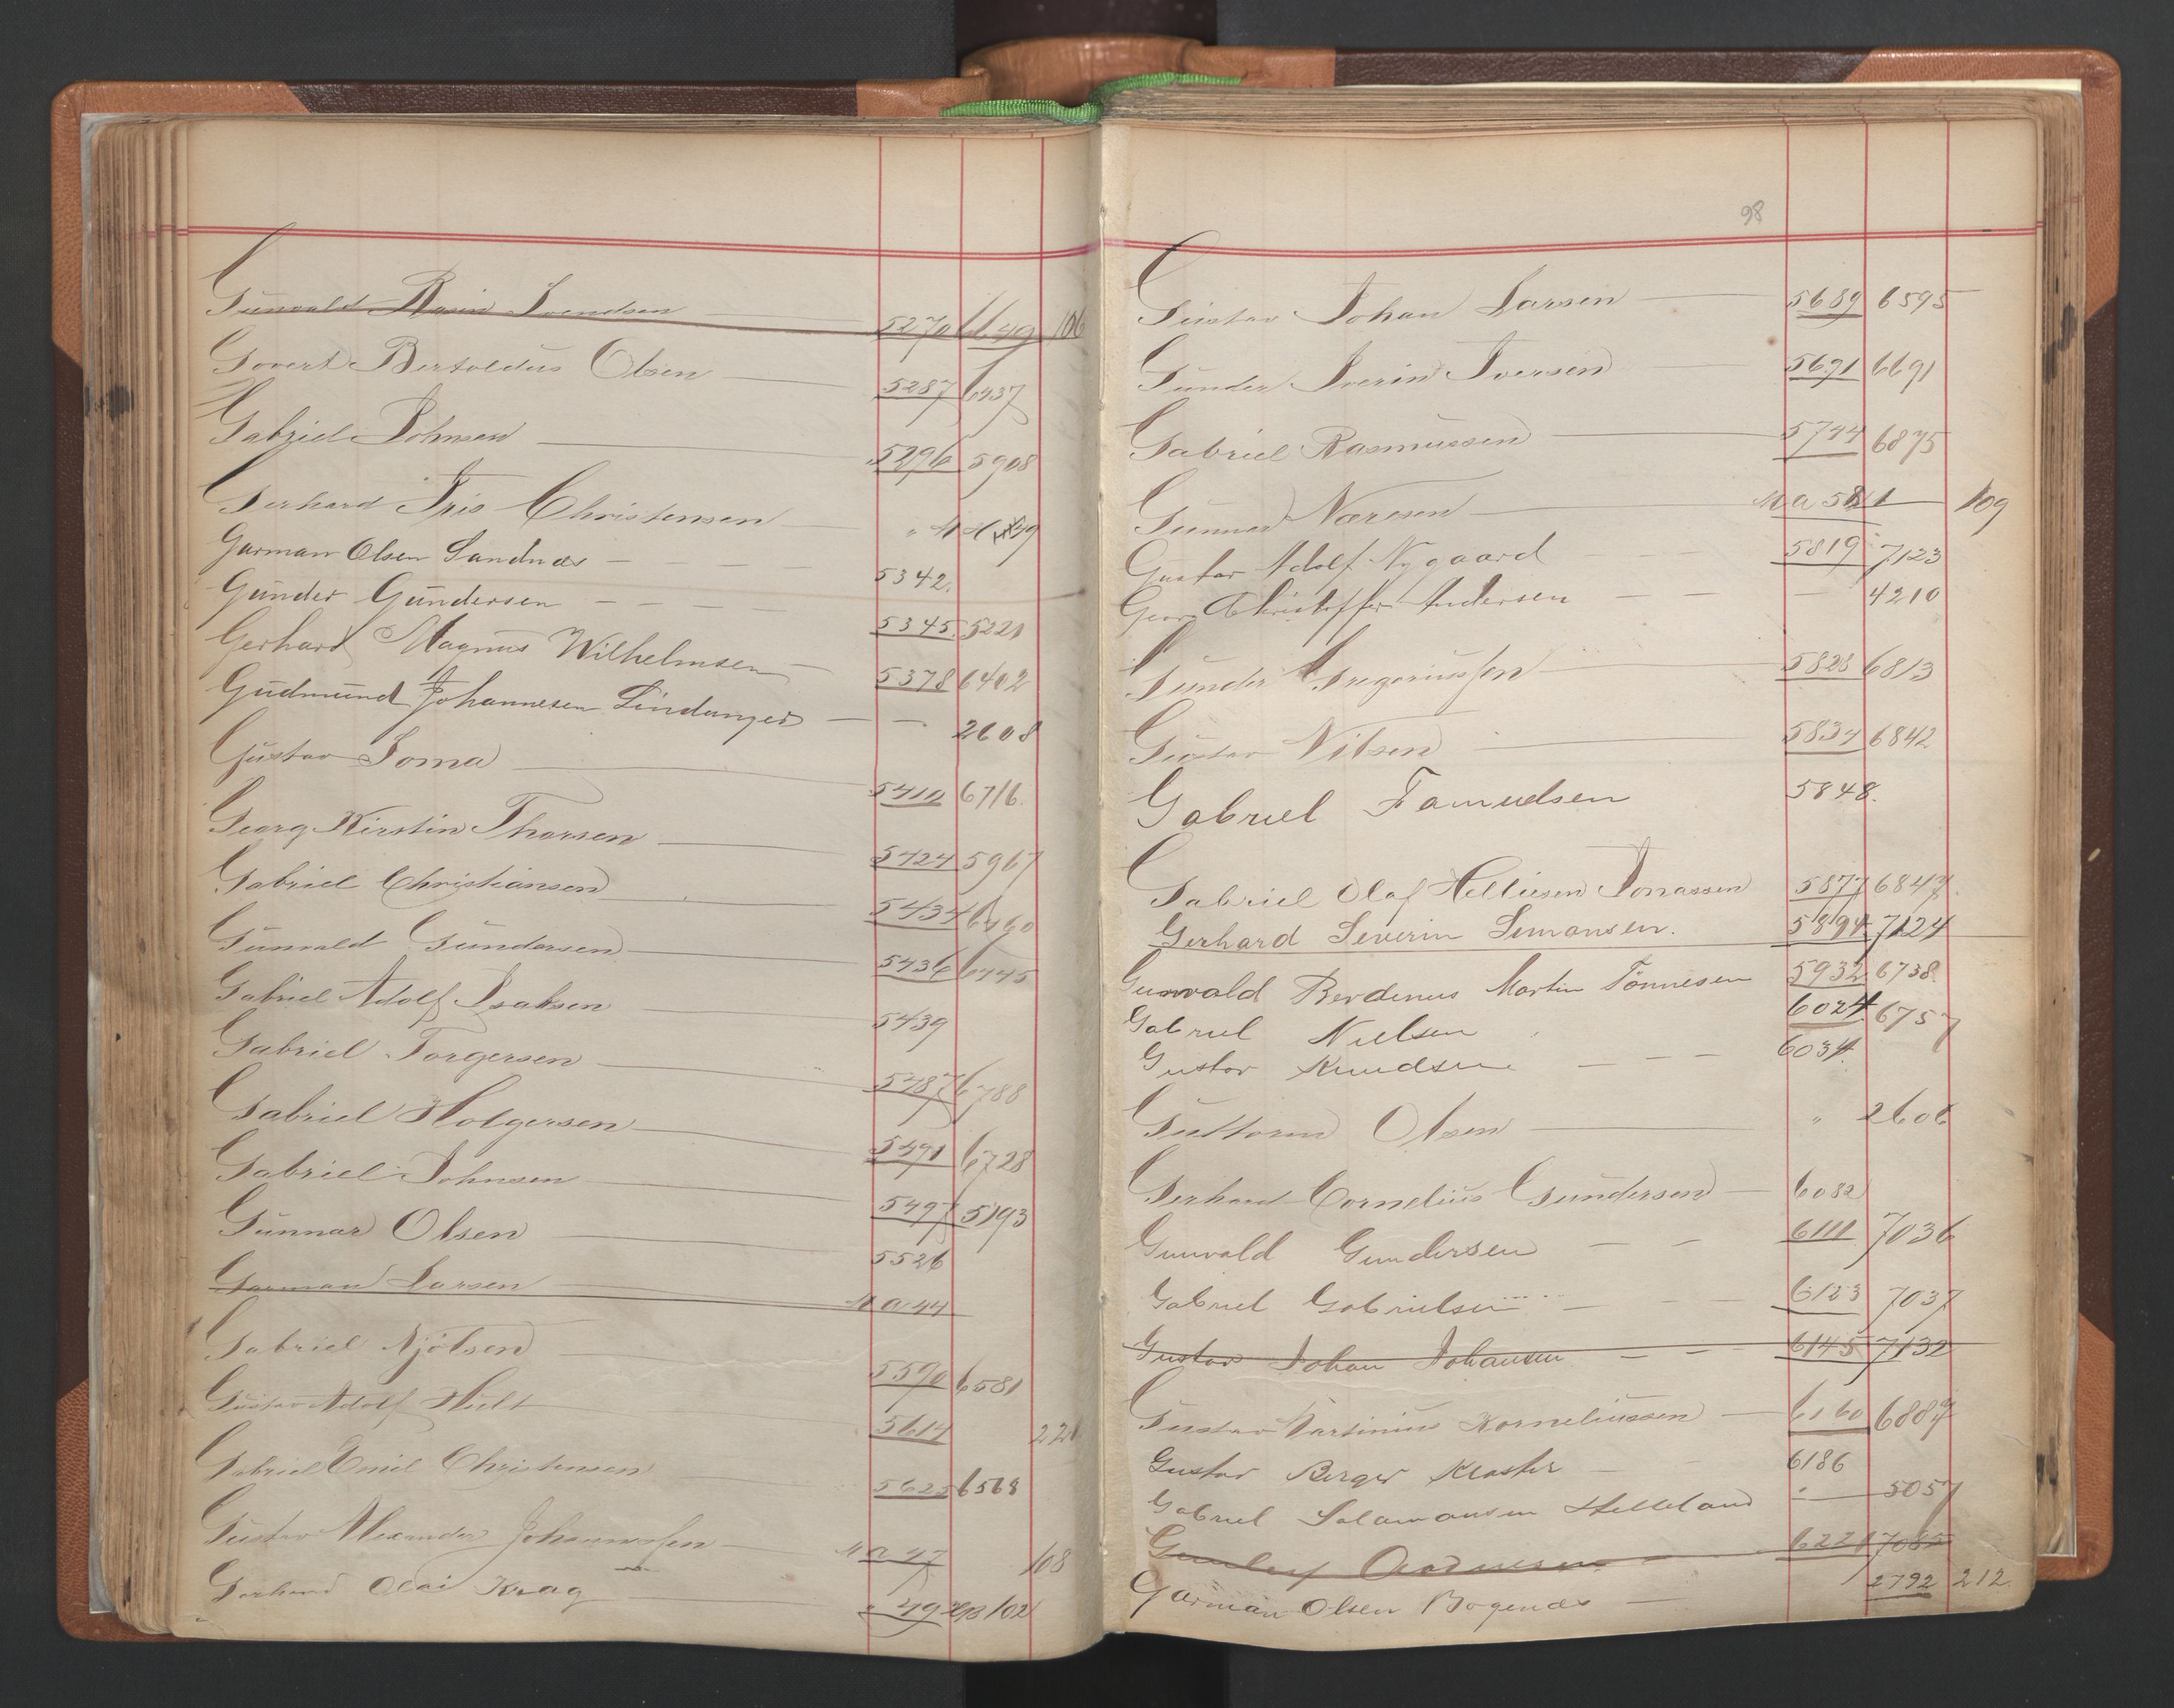 Gunvald Svendsen 5270 6649 106
Govert Bertoldus Olsen 5287 6437
Gabriel Johnsen 5296 5908
Gerhard Friis Christensen "
Garman Olsen Sandnæs 5342.
Gunder Gundersen 5345 5221
Gerhard Magnus Wilhelmsen 5378 6402
Gudmund Johannesen Lindanger 2608
Gustav Soma 5410 6716.
Georg Kirstin Thorsen 5424 5967
Gabriel Christiansen 5434 6460
Gunvald Gundersen 5436 6445
Gabriel Adolf Isaksen 5439
Gabriel Torgersen 5487 6788
Gabriel Holgersen 5491 6728
Gabriel Johnsen 5497 5193
Gunnar Olsen 5526
Garman Larsen M a 44
Gabriel Njölsen 5590 6581
Gustav Adolf Hult 5614 221
Gabriel Emil Christensen 5625 6568
Gustav Alexander Johannessen M a 47 108
Gerhard Olai Krag " 49 102
98
Gustav Johan Larsen 5689 6595
Gunder Iversen 5691 6691
Gabriel Rasmussen 5744 6875
Gunnar Næresen M a 58 109
Gustav Adolf Nygaard 5819 7123
Georg Christoffer Andersen 4210
Gunder Gregoriussen 5828 6813
Gustav Nilsen 5834 6842
Gabriel Tamudsen 5848.
Gabriel Olaf Helliesen Jonassen 5877 6847
Gerhard Severin Simonsen. 5894 7124
Gunvald Berdinus Martin Tönnesen 5932 6738.
Gabriel Nielsen 6024 6757
Gustav Knudsen 6034.
Guttorm Olsen " 2606
Gerhard Cornelius Gundersen 6082
Gunvald Gundersen 6111 7036
Gabriel Gabrielsen 6123 7037
Gustav Johan Johansen 6145 7132
Gustav Martinius Korneliussen 6160 6887
Gustav Berger Kloster 6186
Gabriel Salamonsen Helleland 5057
6221 7085
Garman Olsen Bogenæs 2792 212.